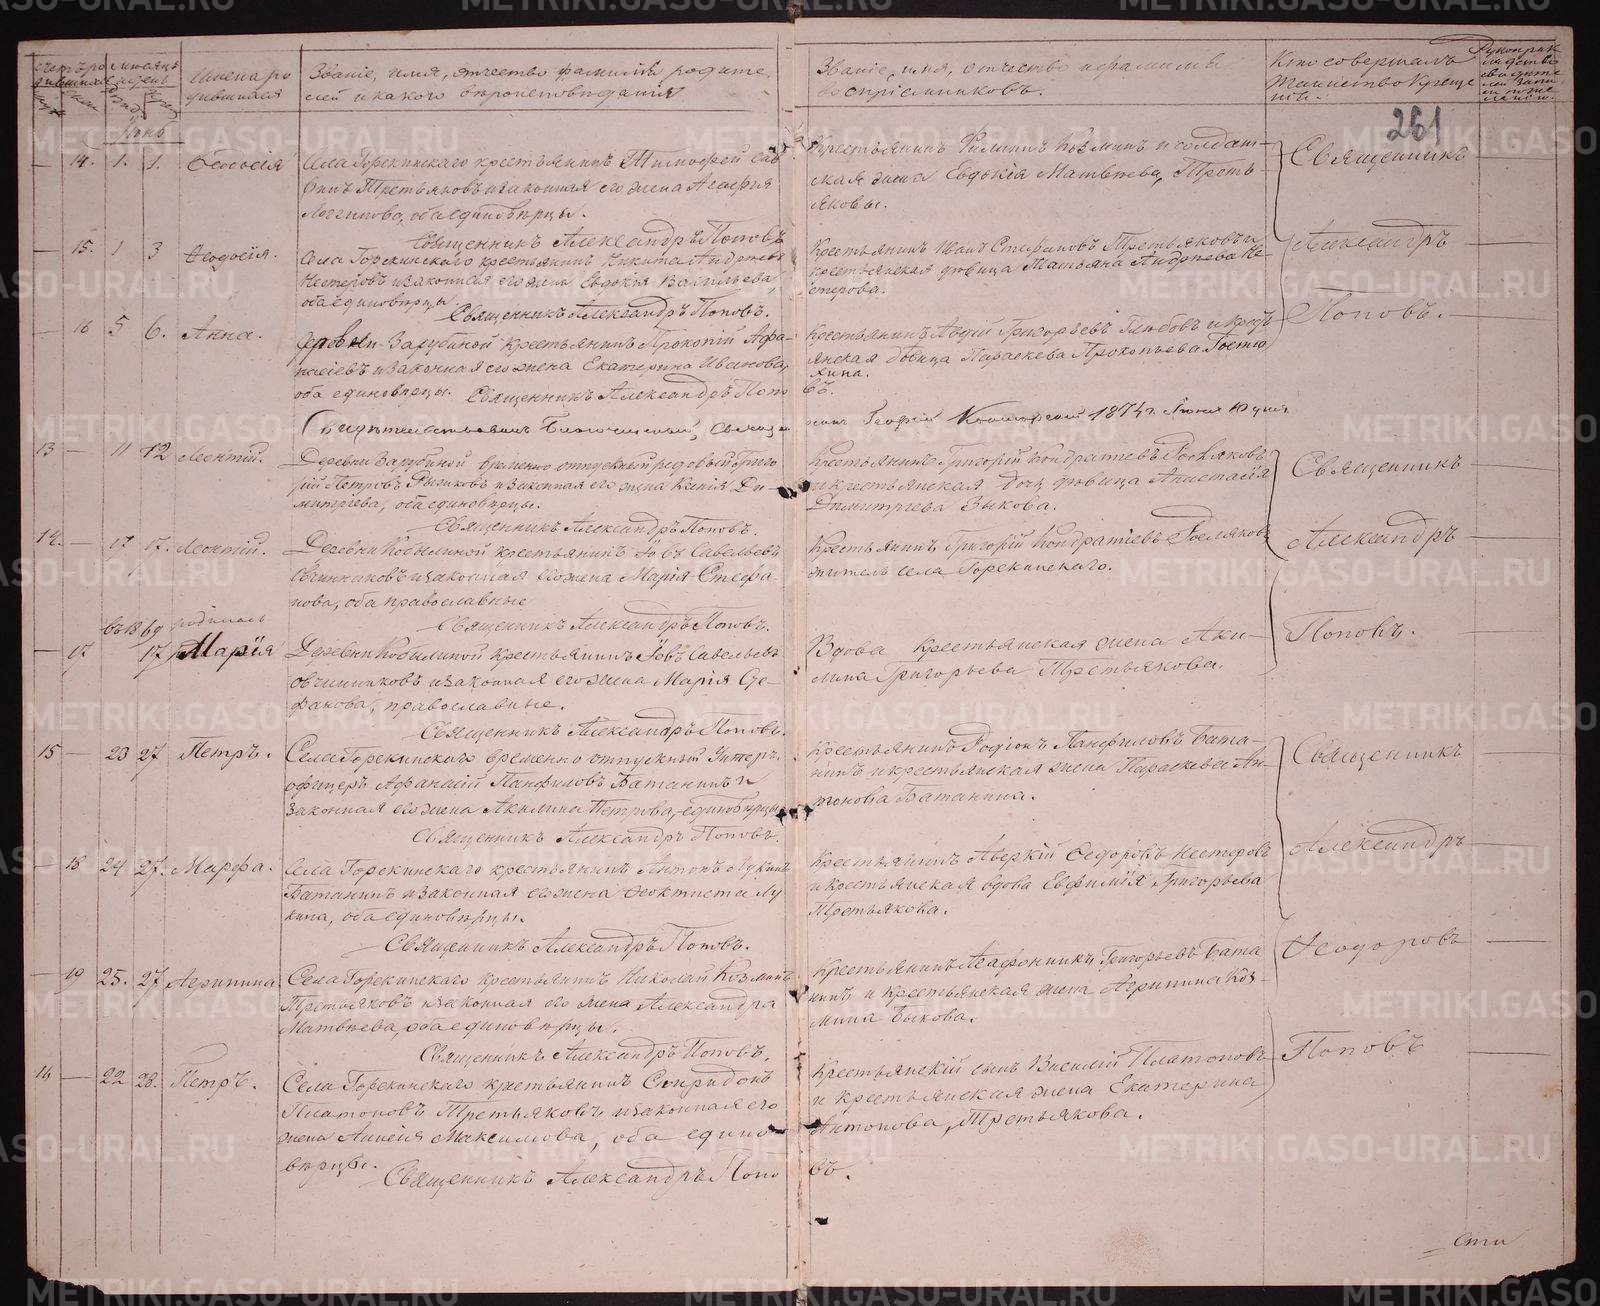 Счетъ родившихся
Мѣсяцъ и день
Имена родившихся
Званіе, имя, отчество фамилія родите
лей и какого вѣроисповѣданія
Званіе, имя, отчество и фамилія
воспріемниковъ.
Кто совершалъ
Таинство Креще
нія.
261
Іюнь
14. 1. 1. Феодосія
Села Горскинскаго крестьянинъ Тимофей Сав
винъ Третьяковъ и законная его жена Агафія
Логгинова, оба единовѣрцы.
Священникъ Александръ Поповъ
Крестьянинъ Филиппъ Козминъ и солдат
ская жена Евдокія Матвѣева, Треть
яковы.
Священникъ
15. 1 3 Ѳеодосія.
Села Горскинскаго крестьянинъ Никита Андреевъ
Нестеровъ и законная его жена Евдокія Васильева,
оба единовѣрцы.
Священникъ Александръ Поповъ.
Крестьянинъ Иванъ Стефановъ Третьяковъ и
крестьянская дѣвица Татьяна Андреева Не-
стерова.
Александръ
16 5 6. Анна.
Деревни Зарубиной крестьянинъ Прокопій Афа-
насіевъ и законная его жена Екатерина Иванова,
оба единовѣрцы. Священникъ Александръ Попо
въ.
Крестьянинъ Авдій Григорьевъ Глѣбовъ и крестъ
янская дѣвица Параскева Прокопьева Гостю
хина.
Поповъ.
Свидѣтельствовалъ Благочинный, Священ
никъ Георгій 1874 г. Іюня 10 дня
13 11 12 Леонтій.
Деревни Зарубиной временно отпускный рядовый Григо
рій Петровъ и законная его жена Ксенія Ди-
митріева, оба единовѣрцы.
Священникъ Александръ Поповъ.
Крестьянинъ Григорій Кондратіевъ
и крестьянская дочь дѣвица Анастасія
Димитріева Зыкова.
Священникъ
14. 17 17. Леонтій.
Деревни Кобылиной крестьянинъ Іовъ Савельевъ
Овчинниковъ и законная его жена Марія Стефа-
нова, оба православные
Священникъ Александръ Поповъ.
Крестьянинъ Григорій Кондратіевъ
житель села Горскинскаго.
Александръ
въ 1869 родилась
17 17 Марія
Деревни Кобылиной крестьянинъ Іовъ Савельевъ
Овчинниковъ и законная его жена Марія Сте-
фанова, православные.
Священникъ Александръ Поповъ.
Вдова крестьянская жена Аки-
лина Григорьева Третьякова.
Поповъ.
15 23 27 Петръ.
Села Горскинскаго временно отпускный Унтеръ
офицеръ Афанасій Панфиловъ Батанинъ и
законная его жена Акилина Петрова, единовѣрцы
Священникъ Александръ Поповъ.
Крестьянинъ Родіонъ Панфиловъ Бата-
нинъ и крестьянская жена Параскева Ан-
тонова Батанина.
Священникъ
18 24 27. Марфа.
Села Горскинскаго крестьянинъ Антонъ Лукинъ
Батанинъ и законная его жена Феоктиста Лу
кина, оба единовѣрцы.
Священникъ Александръ Поповъ.
Крестьянинъ Аверкій Федоровъ Нестеровъ
и крестьянская вдова Евфимія Григорьева
Третьякова.
Александръ
19 25. 27. Агрипина
Села Горскинскаго крестьянинъ Николай Козминъ
Третьяковъ и законная его жена Александра
Матвѣева, оба единовѣрцы.
Священникъ Александръ Поповъ.
Крестьянинъ Агафонникъ Григорьевъ Бата
нинъ и крестьянская жена Агрипина Коз
мина Быкова.
Ѳеодоровъ
16 22 28. Петръ.
Села Горскинскаго крестьянинъ Спиридонъ
Платоновъ Третьяковъ и законная его
жена Анисія Максимова, оба едино
вѣрцы. Священникъ Александръ Попо
въ.
Крестьянскій сынъ Василій Платоновъ
и крестьянская жена Екатерина
Антонова, Третьякова.
Поповъ
METRIKI.GASO-URAL.RU